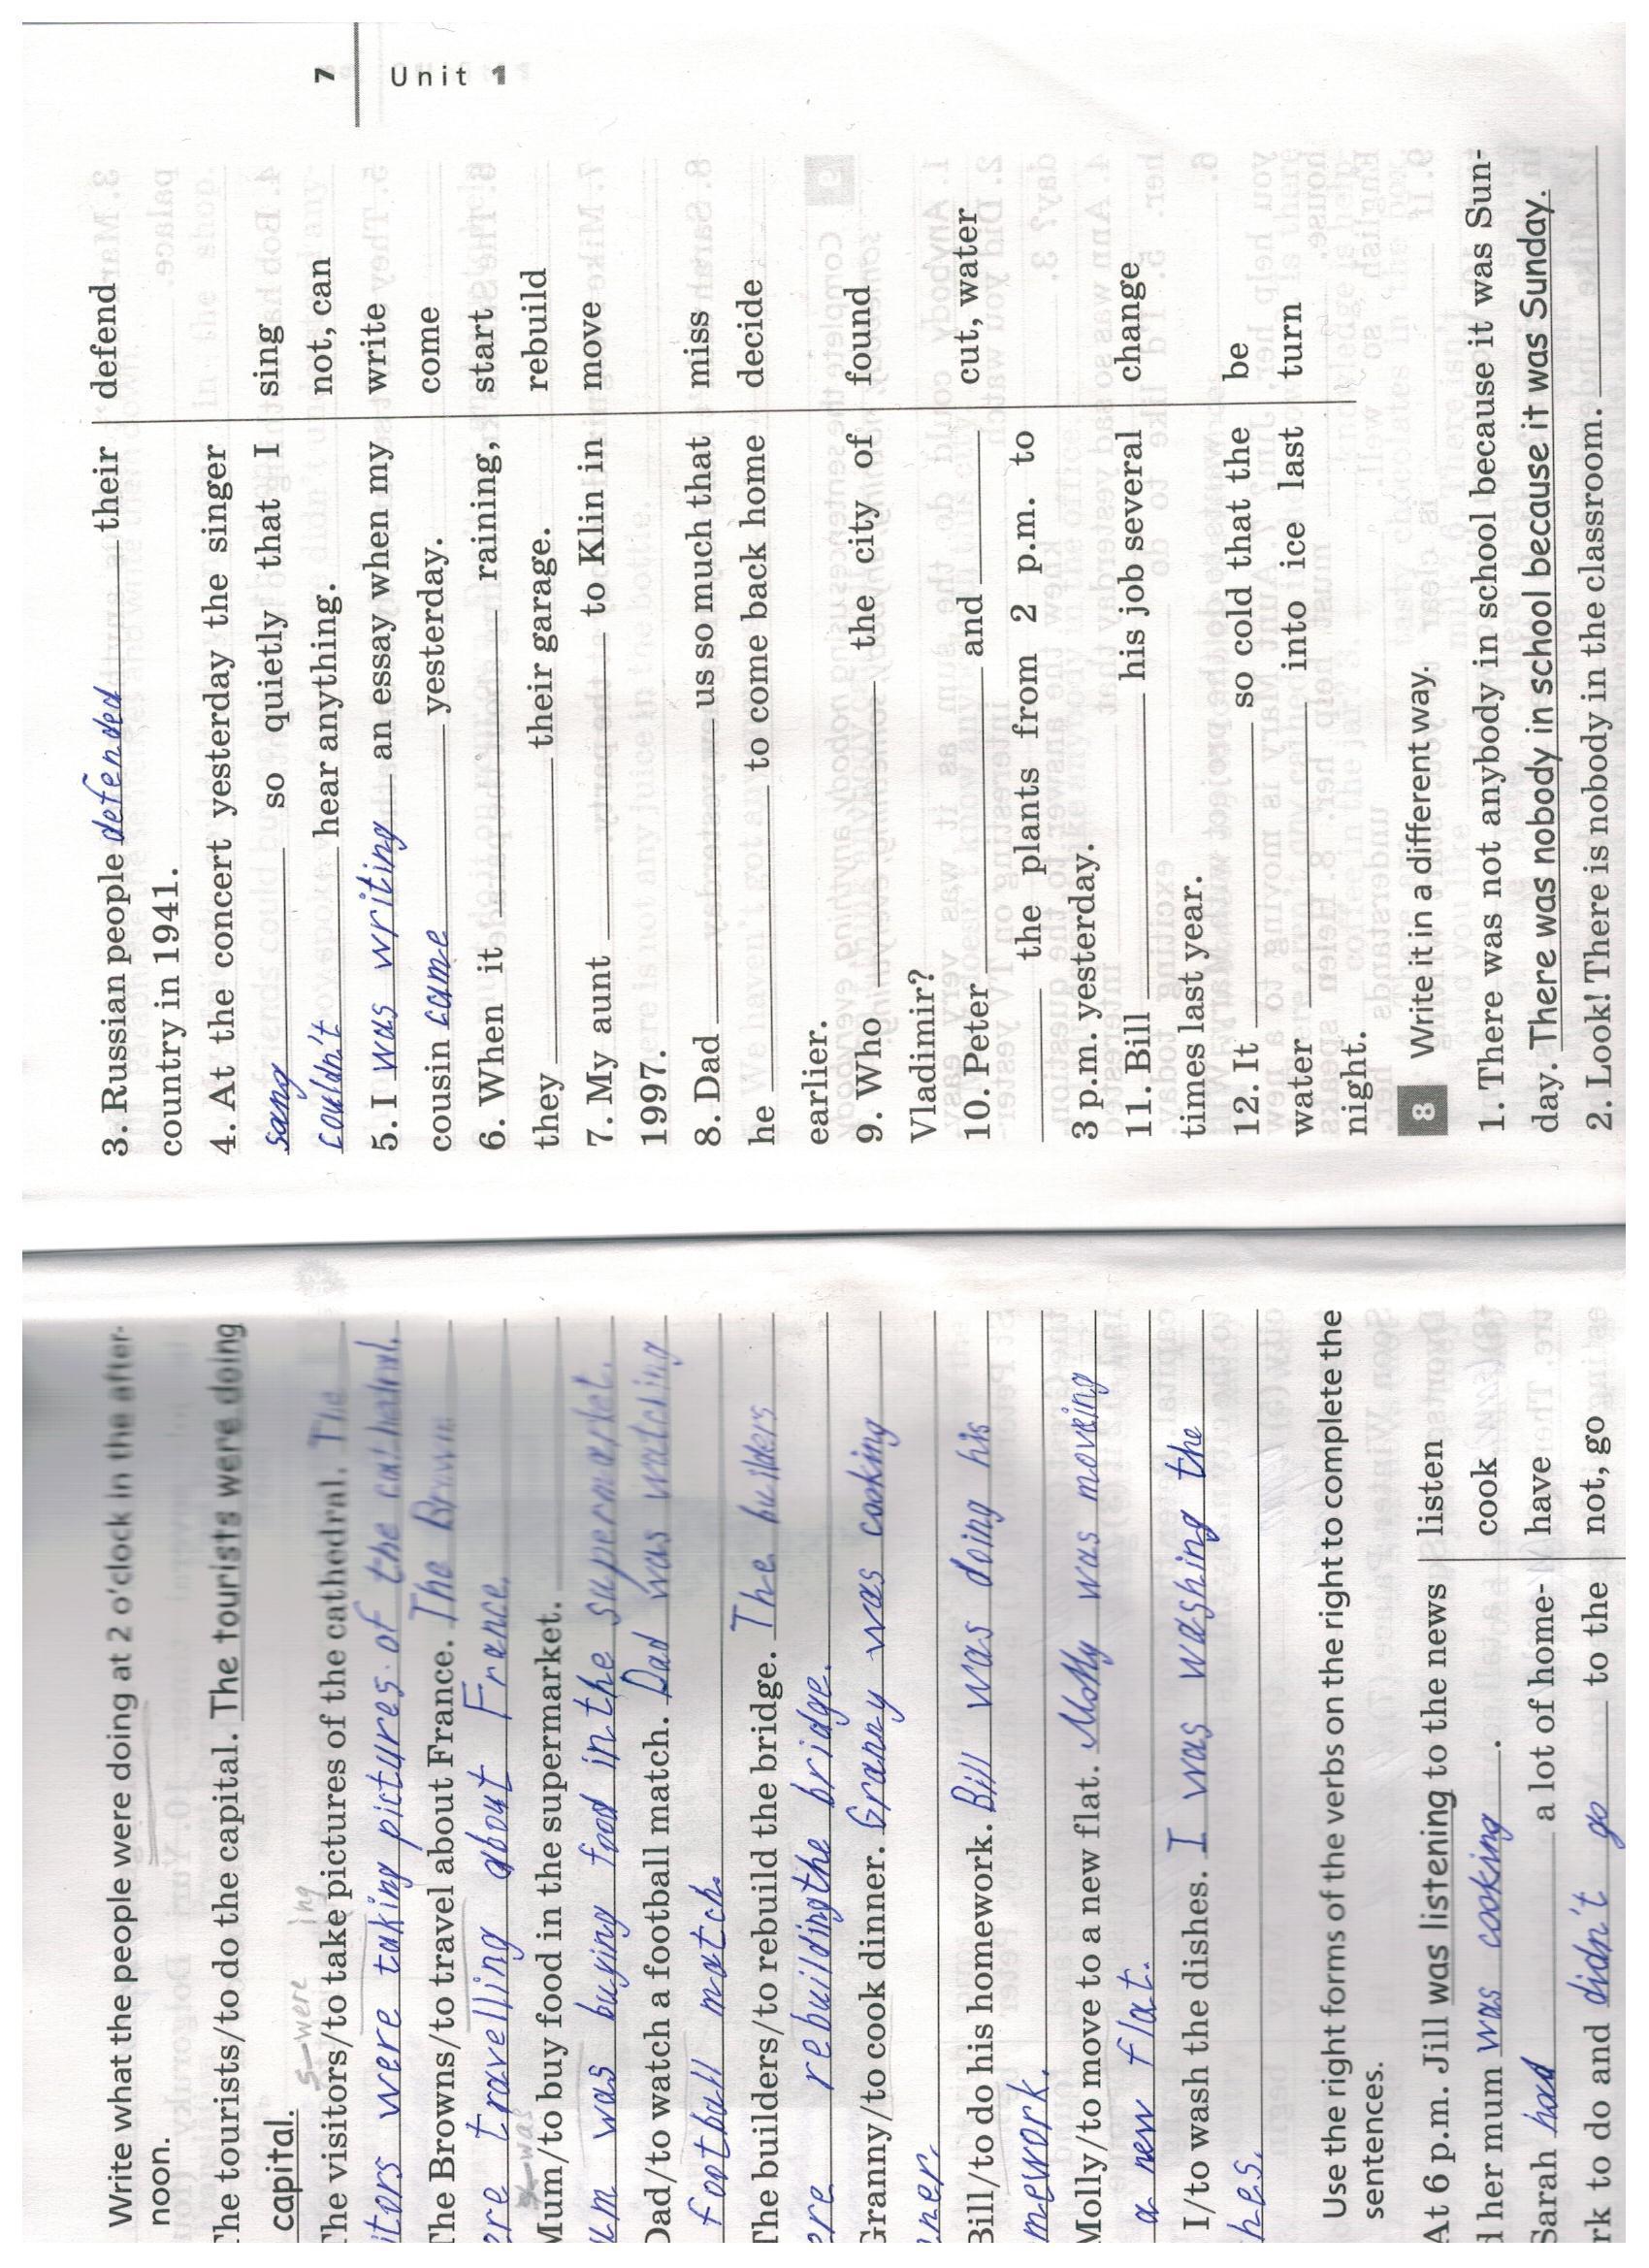 Write what the people were doing at 2 o'clock in the after-
noon.
The tourists/to do the capital. The tourists were doing
capital.
5-were ing
The visitors/to take pictures of the cathedral. The
itors were taking pictures of the cathedral.
The Browns/to travel about France. The Brown
ere travelling about France.
-was
Mum/to buy food in the supermarket.
um was buying food in the supermarket.
Dad/to watch a football match. Dad was watching
football match.
The builders/to rebuild the bridge. The builders
ere rebuilding the bridge.
Granny/to cook dinner. Granny was cooking
nner.
Bill/to do his homework. Bill was doing his
mework.
Molly/to move to a new flat. Molly was moveing
a new flat.
I/to wash the dishes. I was washing the
hes.
Use the right forms of the verbs on the right to complete the
sentences.
At 6 p.m. Jill was listening to the news listen
d her mum was cooking. cook
Sarah had a lot of home- have
rk to do and didn't go to the not, go
3. Russian people defended their defend
country in 1941.
4. At the concert yesterday the singer
sang so quietly that I sing
couldn't hear anything. not, can
5. I was writing an essay when my write
cousin came yesterday. come
6. When it raining, start
they their garage. rebuild
7. My aunt to Klin in move
1997.
8. Dad us so much that miss
he to come back home decide
earlier.
9. Who the city of found
Vladimir?
10. Peter and cut, water
the plants from 2 p.m. to
3 p.m. yesterday.
11. Bill his job several change
times last year.
12. It so cold that the be
water into ice last turn
night.
8 Write it in a different way.
1. There was not anybody in school because it was Sun-
day. There was nobody in school because it was Sunday.
2. Look! There is nobody in the classroom.
7
Unit 1